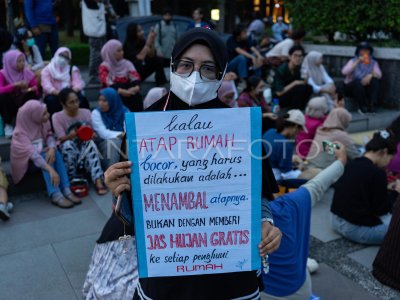 kalau
ATAP RUMAH
bocor, yang harus
dilakukan adalah...
MENAMBAL atapnya.
BUKAN DENGAN MEMBERI
JAS HUJAN GRATIS
ke setiap penghuni
RUMAH